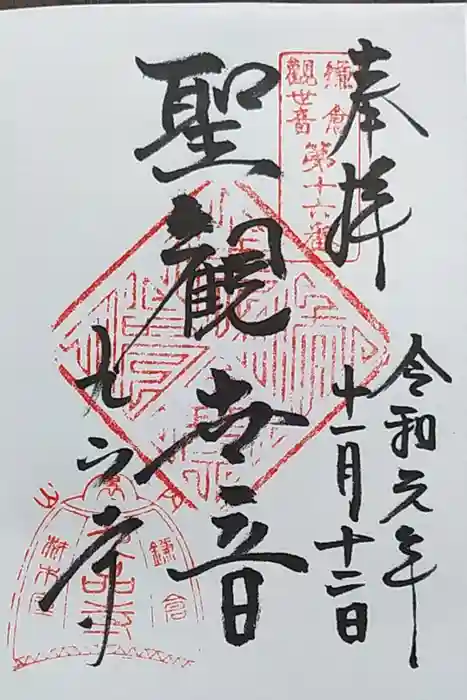 奉拝
令和元年
十一月十二日
鎌倉
觀世音
第十六番
聖觀世音
九品寺
鎌倉
材木座